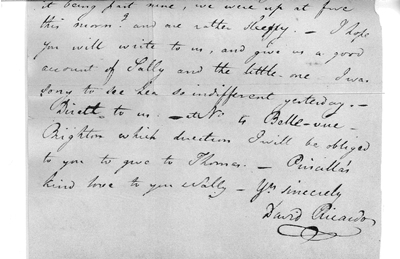 it being past nine, we were up at five
this morn.g and are rather sleepy. — I hope
you will write to us, and give us a good
account of Sally and the little one I was
sorry to see her so indifferent yesterday. —
Direct to us — at No. 4 Belle-vue —
Brighton which direction I will be obliged
to you to give to Thomas. — Priscilla's
kind love to you & Sally — Yrs sincerely
David Ricardo